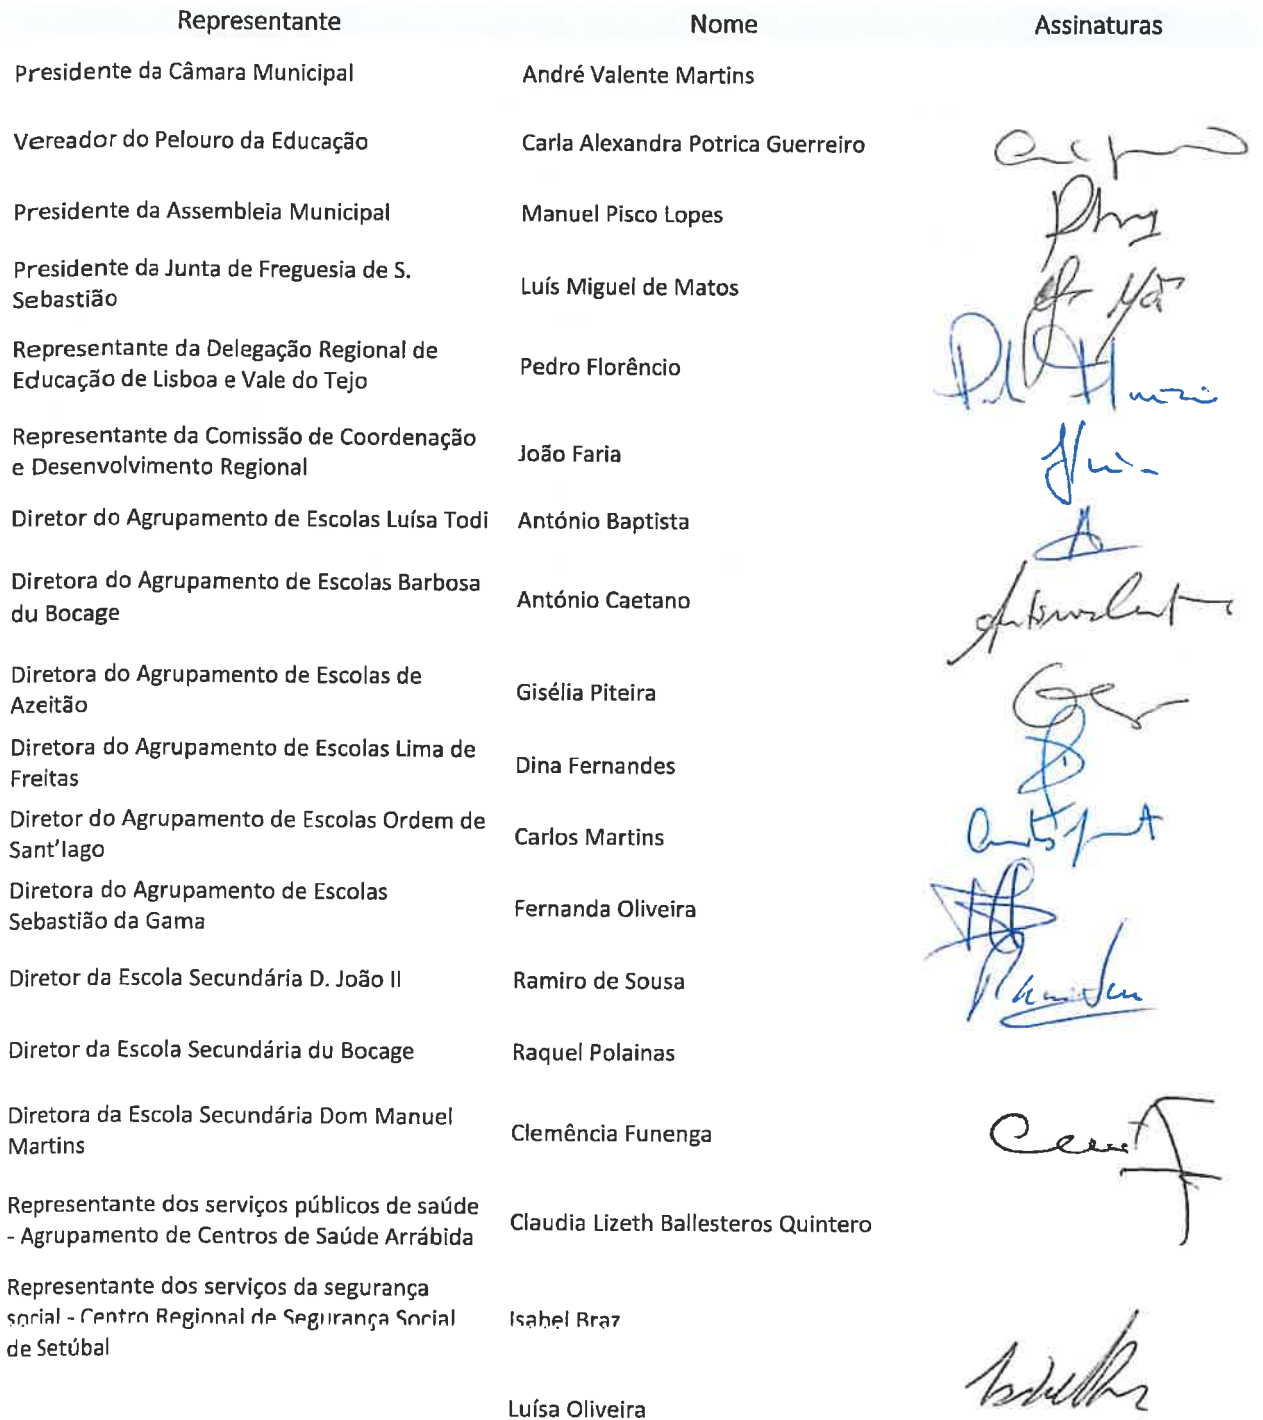 Representante Nome Assinaturas
Presidente da Câmara Municipal André Valente Martins
Vereador do Pelouro da Educação Carla Alexandra Potrica Guerreiro
Presidente da Assembleia Municipal Manuel Pisco Lopes
Presidente da Junta de Freguesia de S.
Sebastião
Luís Miguel de Matos
Representante da Delegação Regional de
Educação de Lisboa e Vale do Tejo
Pedro Florêncio
Representante da Comissão de Coordenação
e Desenvolvimento Regional
João Faria
Diretor do Agrupamento de Escolas Luísa Todi António Baptista
Diretora do Agrupamento de Escolas Barbosa
du Bocage
António Caetano
Diretora do Agrupamento de Escolas de
Azeitão
Gisélia Piteira
Diretora do Agrupamento de Escolas Lima de
Freitas
Dina Fernandes
Diretor do Agrupamento de Escolas Ordem de
Sant'Iago
Carlos Martins
Diretora do Agrupamento de Escolas
Sebastião da Gama
Fernanda Oliveira
Diretor da Escola Secundária D. João II Ramiro de Sousa
Diretor da Escola Secundária du Bocage Raquel Polainas
Diretora da Escola Secundária Dom Manuel
Martins
Clemência Funenga
Representante dos serviços públicos de saúde
- Agrupamento de Centros de Saúde Arrábida
Claudia Lizeth Ballesteros Quintero
Representante dos serviços da segurança
social - Centro Regional de Segurança Social
de Setúbal
Isabel Braz
Luísa Oliveira